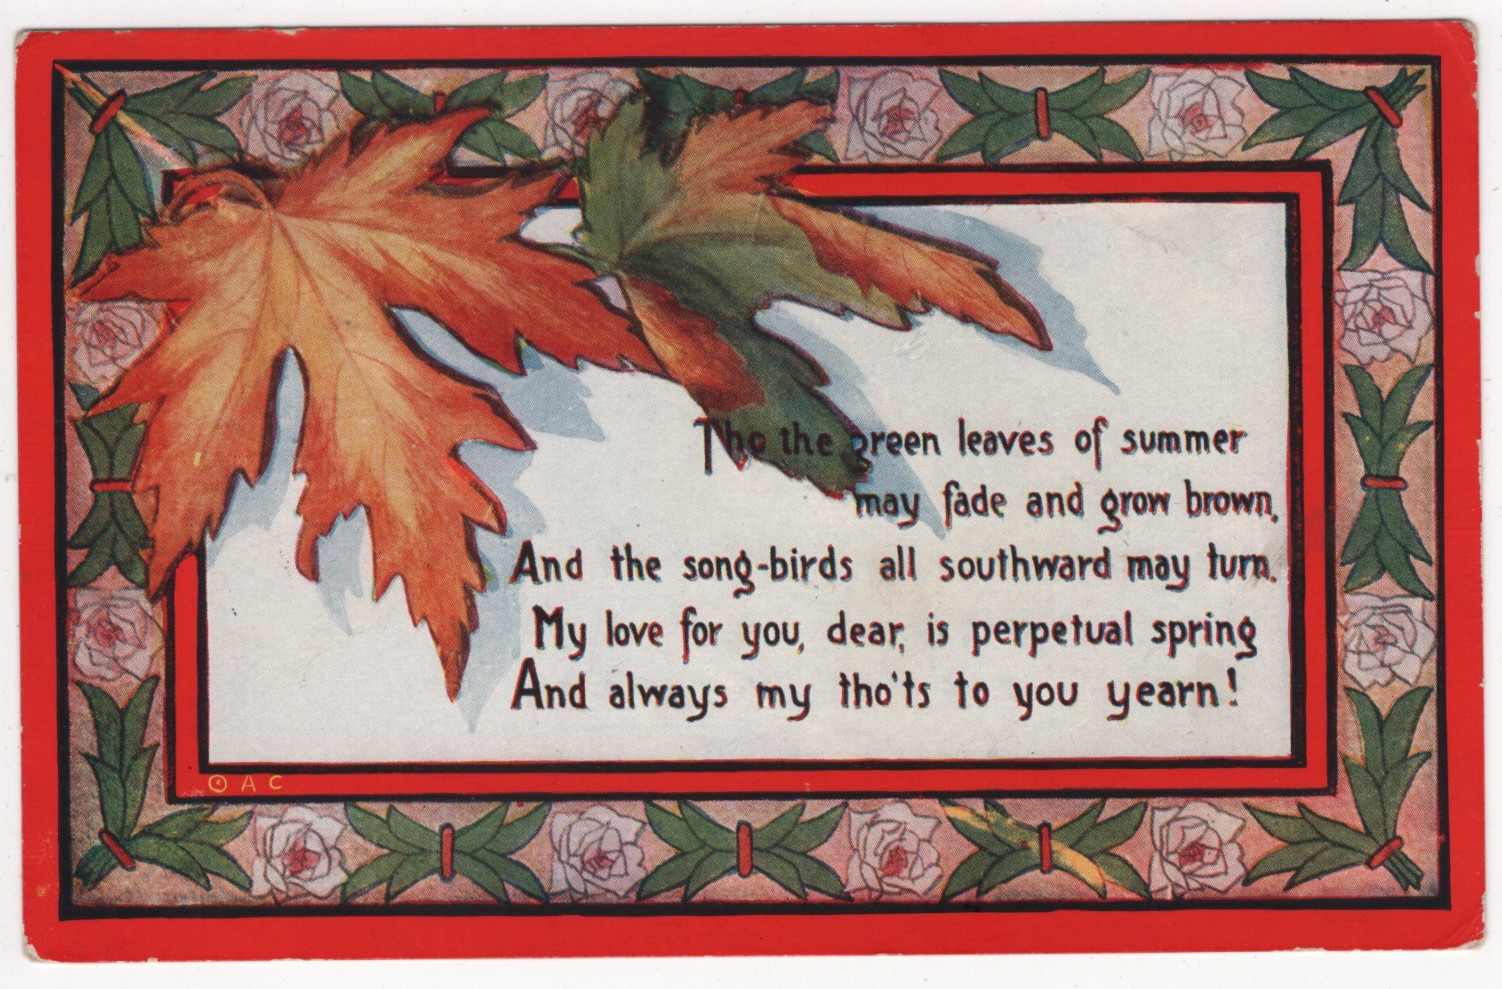 Tho the green leaves of summer
may fade and grow brown,
And the song-birds all southward may turn.
My love for you, dear, is perpetual spring
And always my tho'ts to you yearn!
© A C